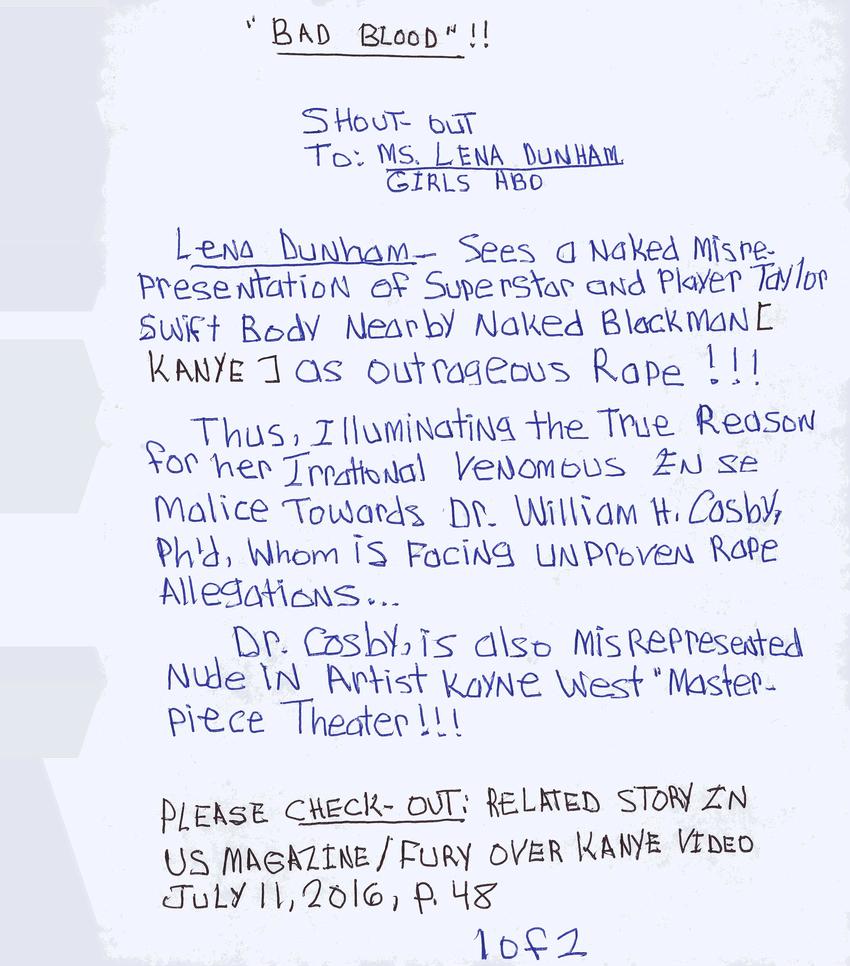 "BAD BLOOD"!!
SHOUT-OUT
TO: MS. LENA DUNHAM
GIRLS HBO
Lena Dunham- Sees a Naked Misre-
Presentation of Superstar and Player Taylor
Swift Body Nearby Naked Blackman [
KANYE ] as outrageous Rape !!!
Thus, Illuminating the True Reason
for her Irrational Venomous EN se
Malice Towards Dr. William H. Cosby,
Ph'd, Whom is Facing UNProven Rape
Allegations...
Dr. Cosby, is also Misrepresented
Nude in Artist Kayne West "Master-
Piece Theater!!!
PLEASE CHECK-OUT: RELATED STORY IN
US MAGAZINE/FURY OVER KANYE VIDEO
JULY 11, 2016, P. 48
1 of 2